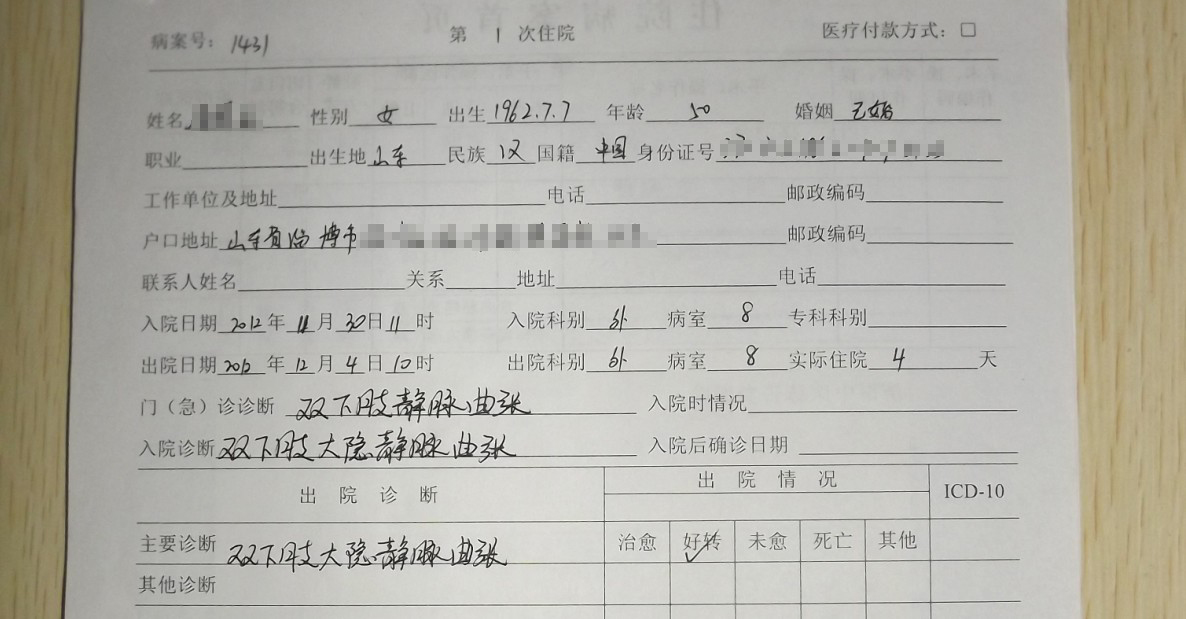 病案号：1431 第 1 次住院 医疗付款方式：□
姓名 性别 女 出生 1962.7.7 年龄 50 婚姻 已婚
职业 出生地 山东 民族 汉 国籍 中国 身份证号
工作单位及地址 电话 邮政编码
户口地址 山东省淄博市 邮政编码
联系人姓名 关系 地址 电话
入院日期 2012 年 11 月 30 日 11 时 入院科别 外 病室 8 专科科别
出院日期 2012 年 12 月 4 日 10 时 出院科别 外 病室 8 实际住院 4 天
门（急）诊诊断 双下肢静脉曲张 入院时情况
入院诊断 双下肢大隐静脉曲张 入院后确诊日期
出院诊断 出院情况 ICD-10
主要诊断 双下肢大隐静脉曲张 治愈 好转 未愈 死亡 其他
其他诊断